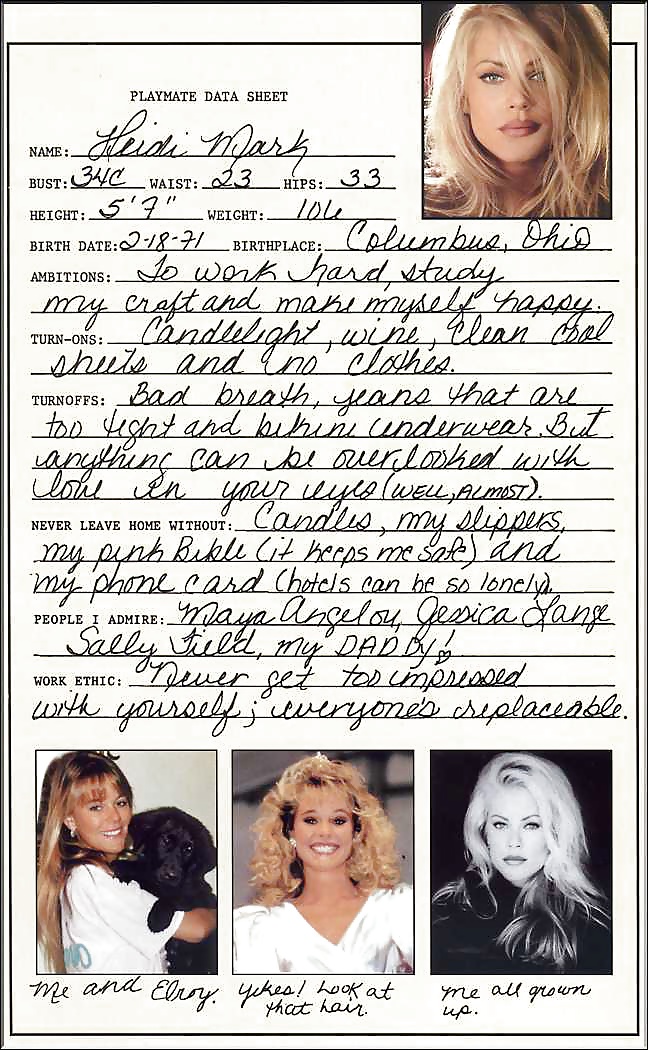 PLAYMATE DATA SHEET
NAME: Heidi Mark
BUST: 34C WAIST: 23 HIPS: 33
HEIGHT: 5'7" WEIGHT: 106
BIRTH DATE: 2-18-71 BIRTHPLACE: Columbus, Ohio
AMBITIONS: To work hard, study
my craft and make myself happy.
TURN-ONS: Candlelight, wine, clean cool
sheets and no clothes.
TURNOFFS: Bad breath, jeans that are
too tight and bikini underwear. But
anything can be overlooked with
love in your eyes (WELL, ALMOST).
NEVER LEAVE HOME WITHOUT: Candles, my slippers,
my pink Bible (it keeps me safe) and
my phone card (hotels can be so lonely).
PEOPLE I ADMIRE: Maya Angelou, Jessica Lange
Sally Field, my DADDY!
WORK ETHIC: Never get too impressed
with yourself; everyone's replaceable.
Me and Elroy.
Yikes! Look at
that hair.
Me all grown
up.